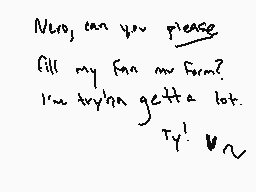 Nero, can you please
fill my fan mv form?
I'm try'na getta lot.
Ty!